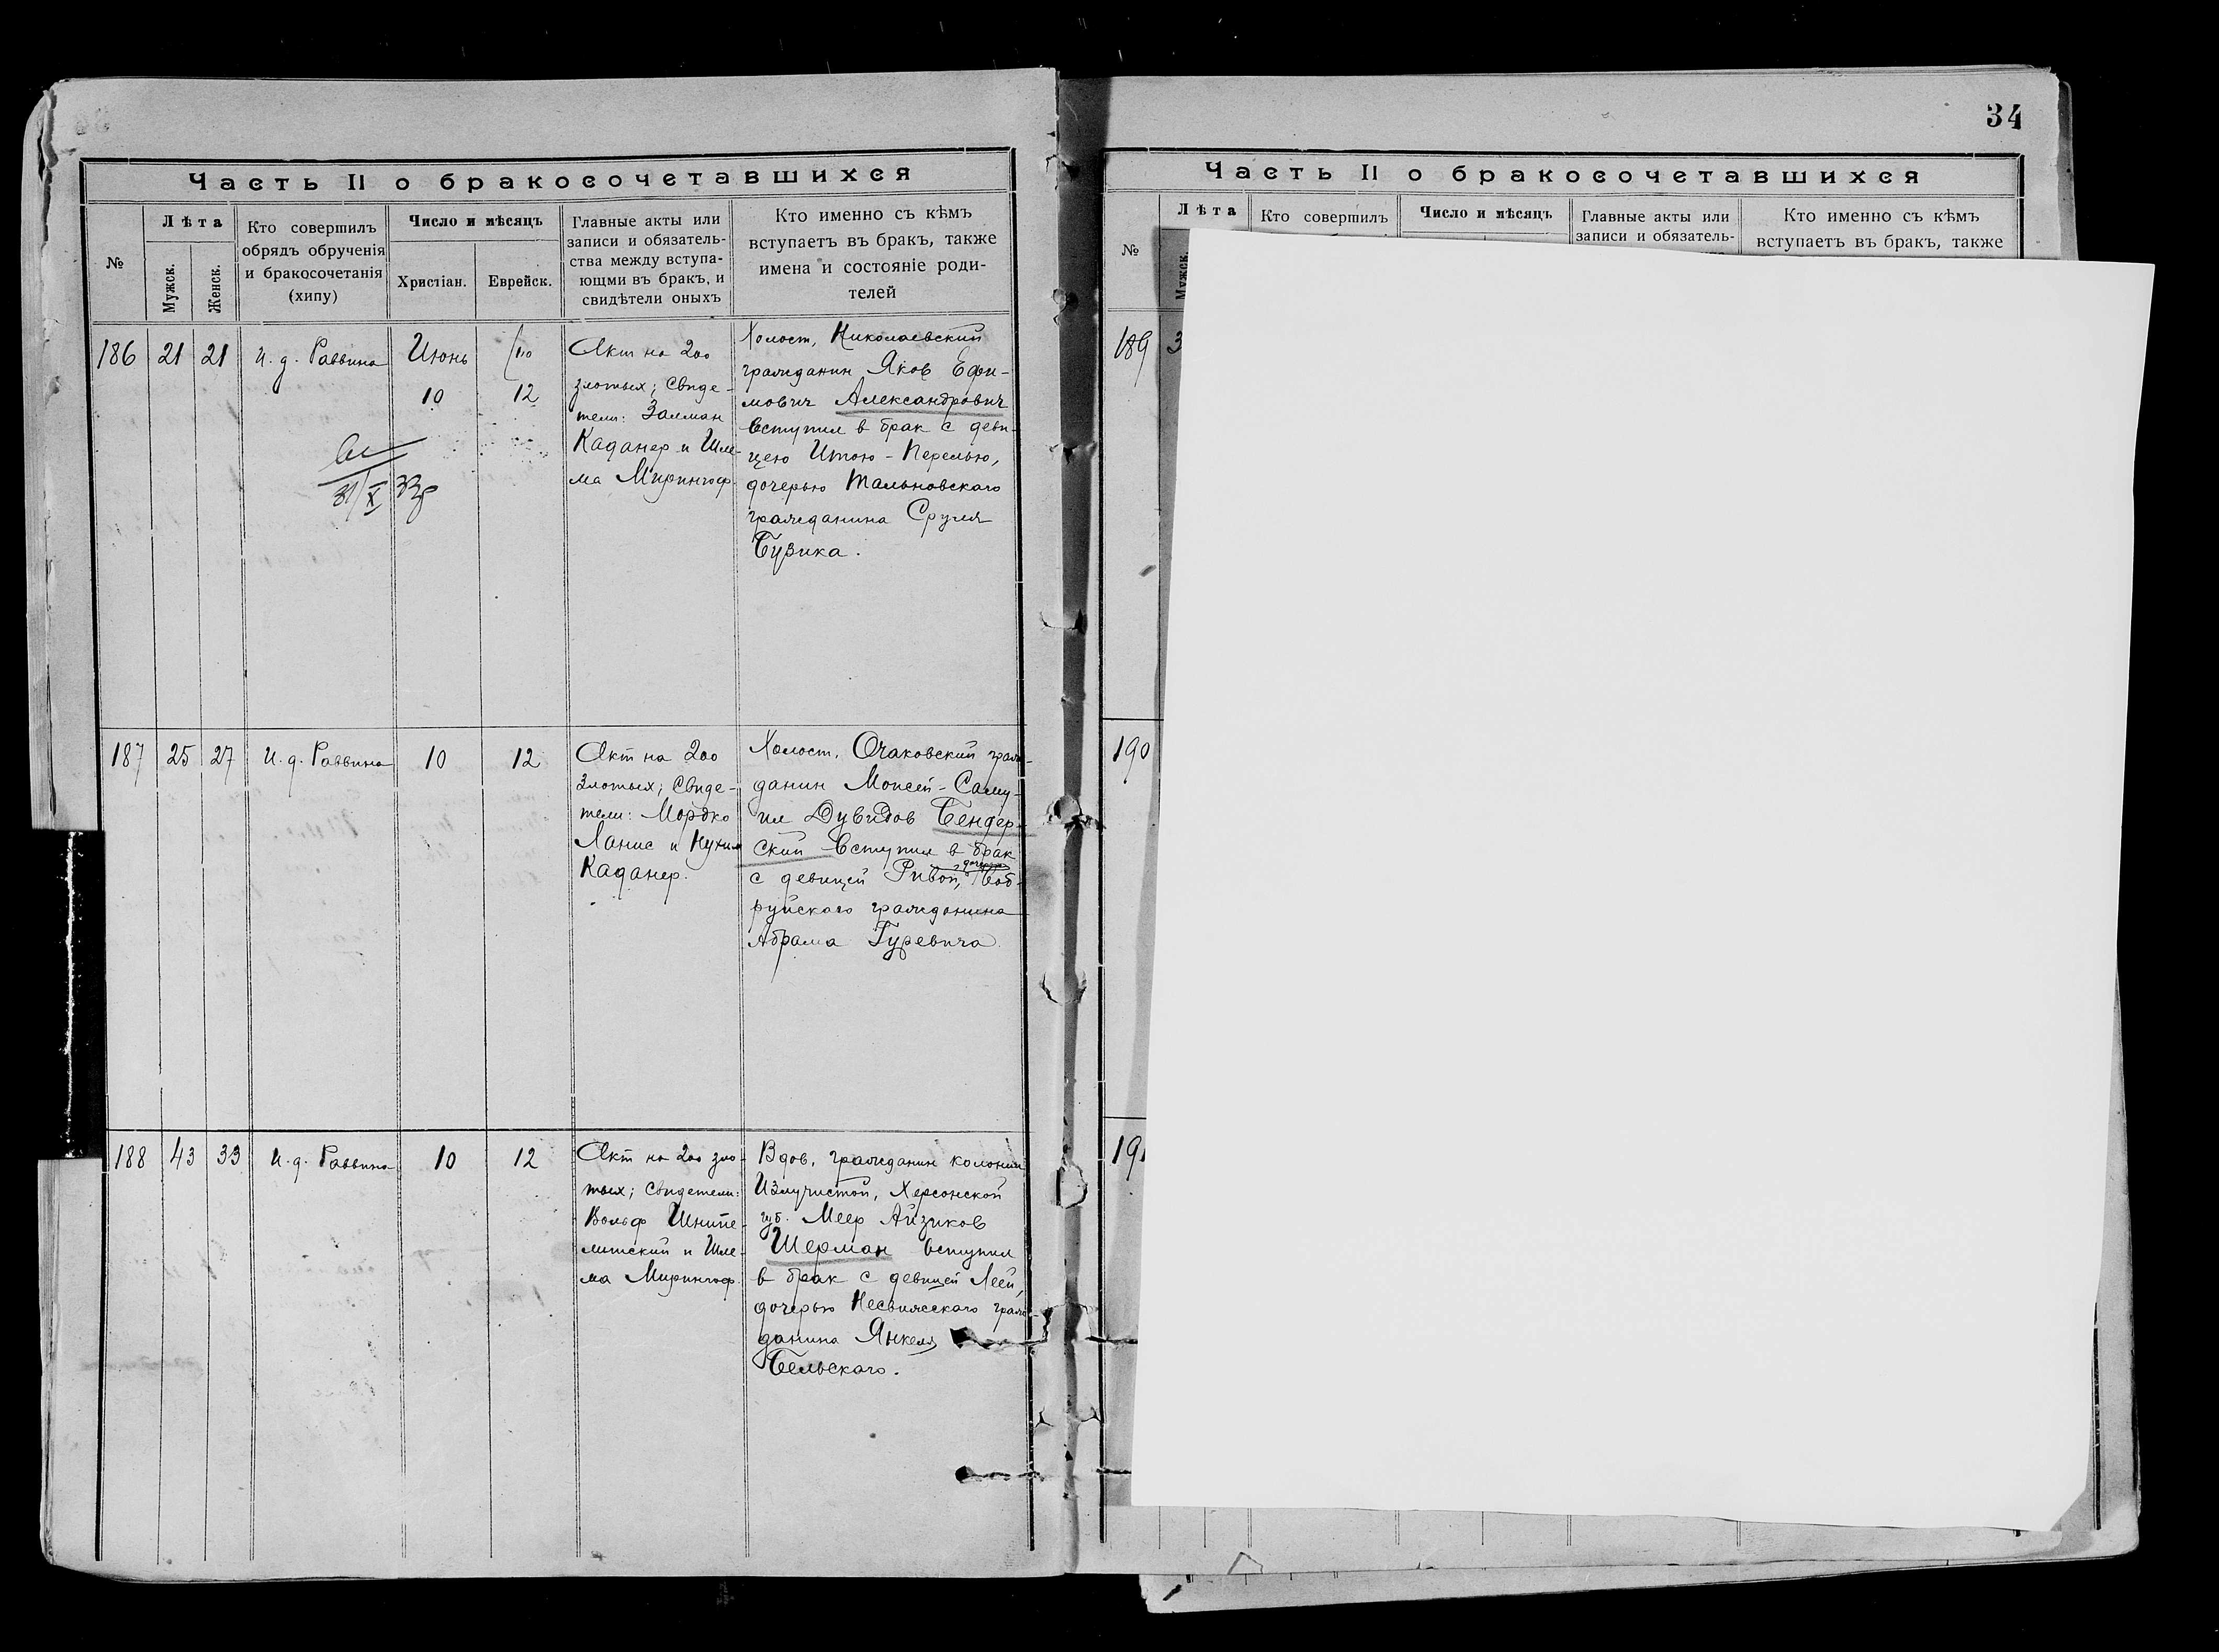 34
Часть II о бракосочетавшихся
№
Лѣта
Мужск.
Женск.
Кто совершилъ
обрядъ обрученія
и бракосочетанія
(хипу)
Число и мѣсяцъ
Христіан.
Еврейск.
Главные акты или
записи и обязатель-
ства между вступа-
ющми въ бракъ, и
свидѣтели оныхъ
Кто именно съ кѣмъ
вступаетъ въ бракъ, также
имена и состояніе роди-
телей
186
21
21
И. д. Раввина
Июнь
10
12
31/X 33г
Акт на 200
злотых; Свиде-
тели: Залман
Каданер и Шле-
ма Мирингоф.
Холост, Николаевский
гражданин Яков Ефи-
мович Александрович
вступил в брак с деви-
цею Итою-Перелью,
дочерью Тальновского
гражданина Сруля
Бузика.
187
25
27
И. д. Раввина
10
12
Акт на 200
злотых; Свиде-
тели: Мордко
Ланис и Нухим
Каданер.
Холост, Очаковский граж-
данин Моисей-Саму-
ил Дувидов Бендер-
ский вступил в брак
с девицей Ривой, дочерью Боб-
руйского гражданина
Абрама Гуревича
188
43
33
И. д. Раввина
10
12
Акт на 200 зло-
тых; Свидетели:
Вольф Шнипе-
лишский и Шле-
ма Мирингоф.
Вдов, гражданин колонии
Излучистой, Херсонской
губ. Меер Айзиков
Шерман вступил
в брак с девицей Леей,
дочерью Несвижского граж-
данина Янкеля
Бельского.
Часть II о бракосочетавшихся
№
Лѣта
Мужск.
Кто совершилъ
Число и мѣсяцъ
Главные акты или
записи и обязатель-
Кто именно съ кѣмъ
вступаетъ въ бракъ, также
189
3
190
191